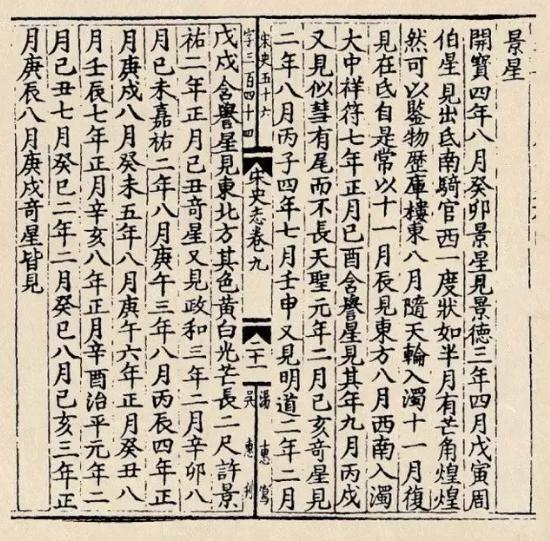 景星
開寶四年八月癸卯景星見景德三年四月戊寅周
伯星見出氐南騎官西一度狀如半月有芒角煌煌
然可以鑒物歷庫樓東八月隨天輪入濁十一月復
見在氐自是常以十一月辰見東方八月西南入濁
大中祥符七年正月己酉含譽星見其年九月丙戌
又見似彗有尾而不長天聖元年二月己亥奇星見
二年八月丙子四年七月壬申又見明道二年二月
宋史五十六
字三百四十四
宋史志卷九
二十一
戊戌含譽星見東北方其色黃白光芒長二尺許景
祐二年正月己丑奇星又見政和三年二月辛卯八
月己未嘉祐二年八月庚午三年八月丙辰四年正
月庚戌八月癸未五年八月庚午六年正月癸丑八
月壬辰七年正月辛亥八年正月辛酉治平元年二
月己丑七月癸巳二年二月癸巳八月己亥三年正
月庚辰八月庚戌奇星皆見